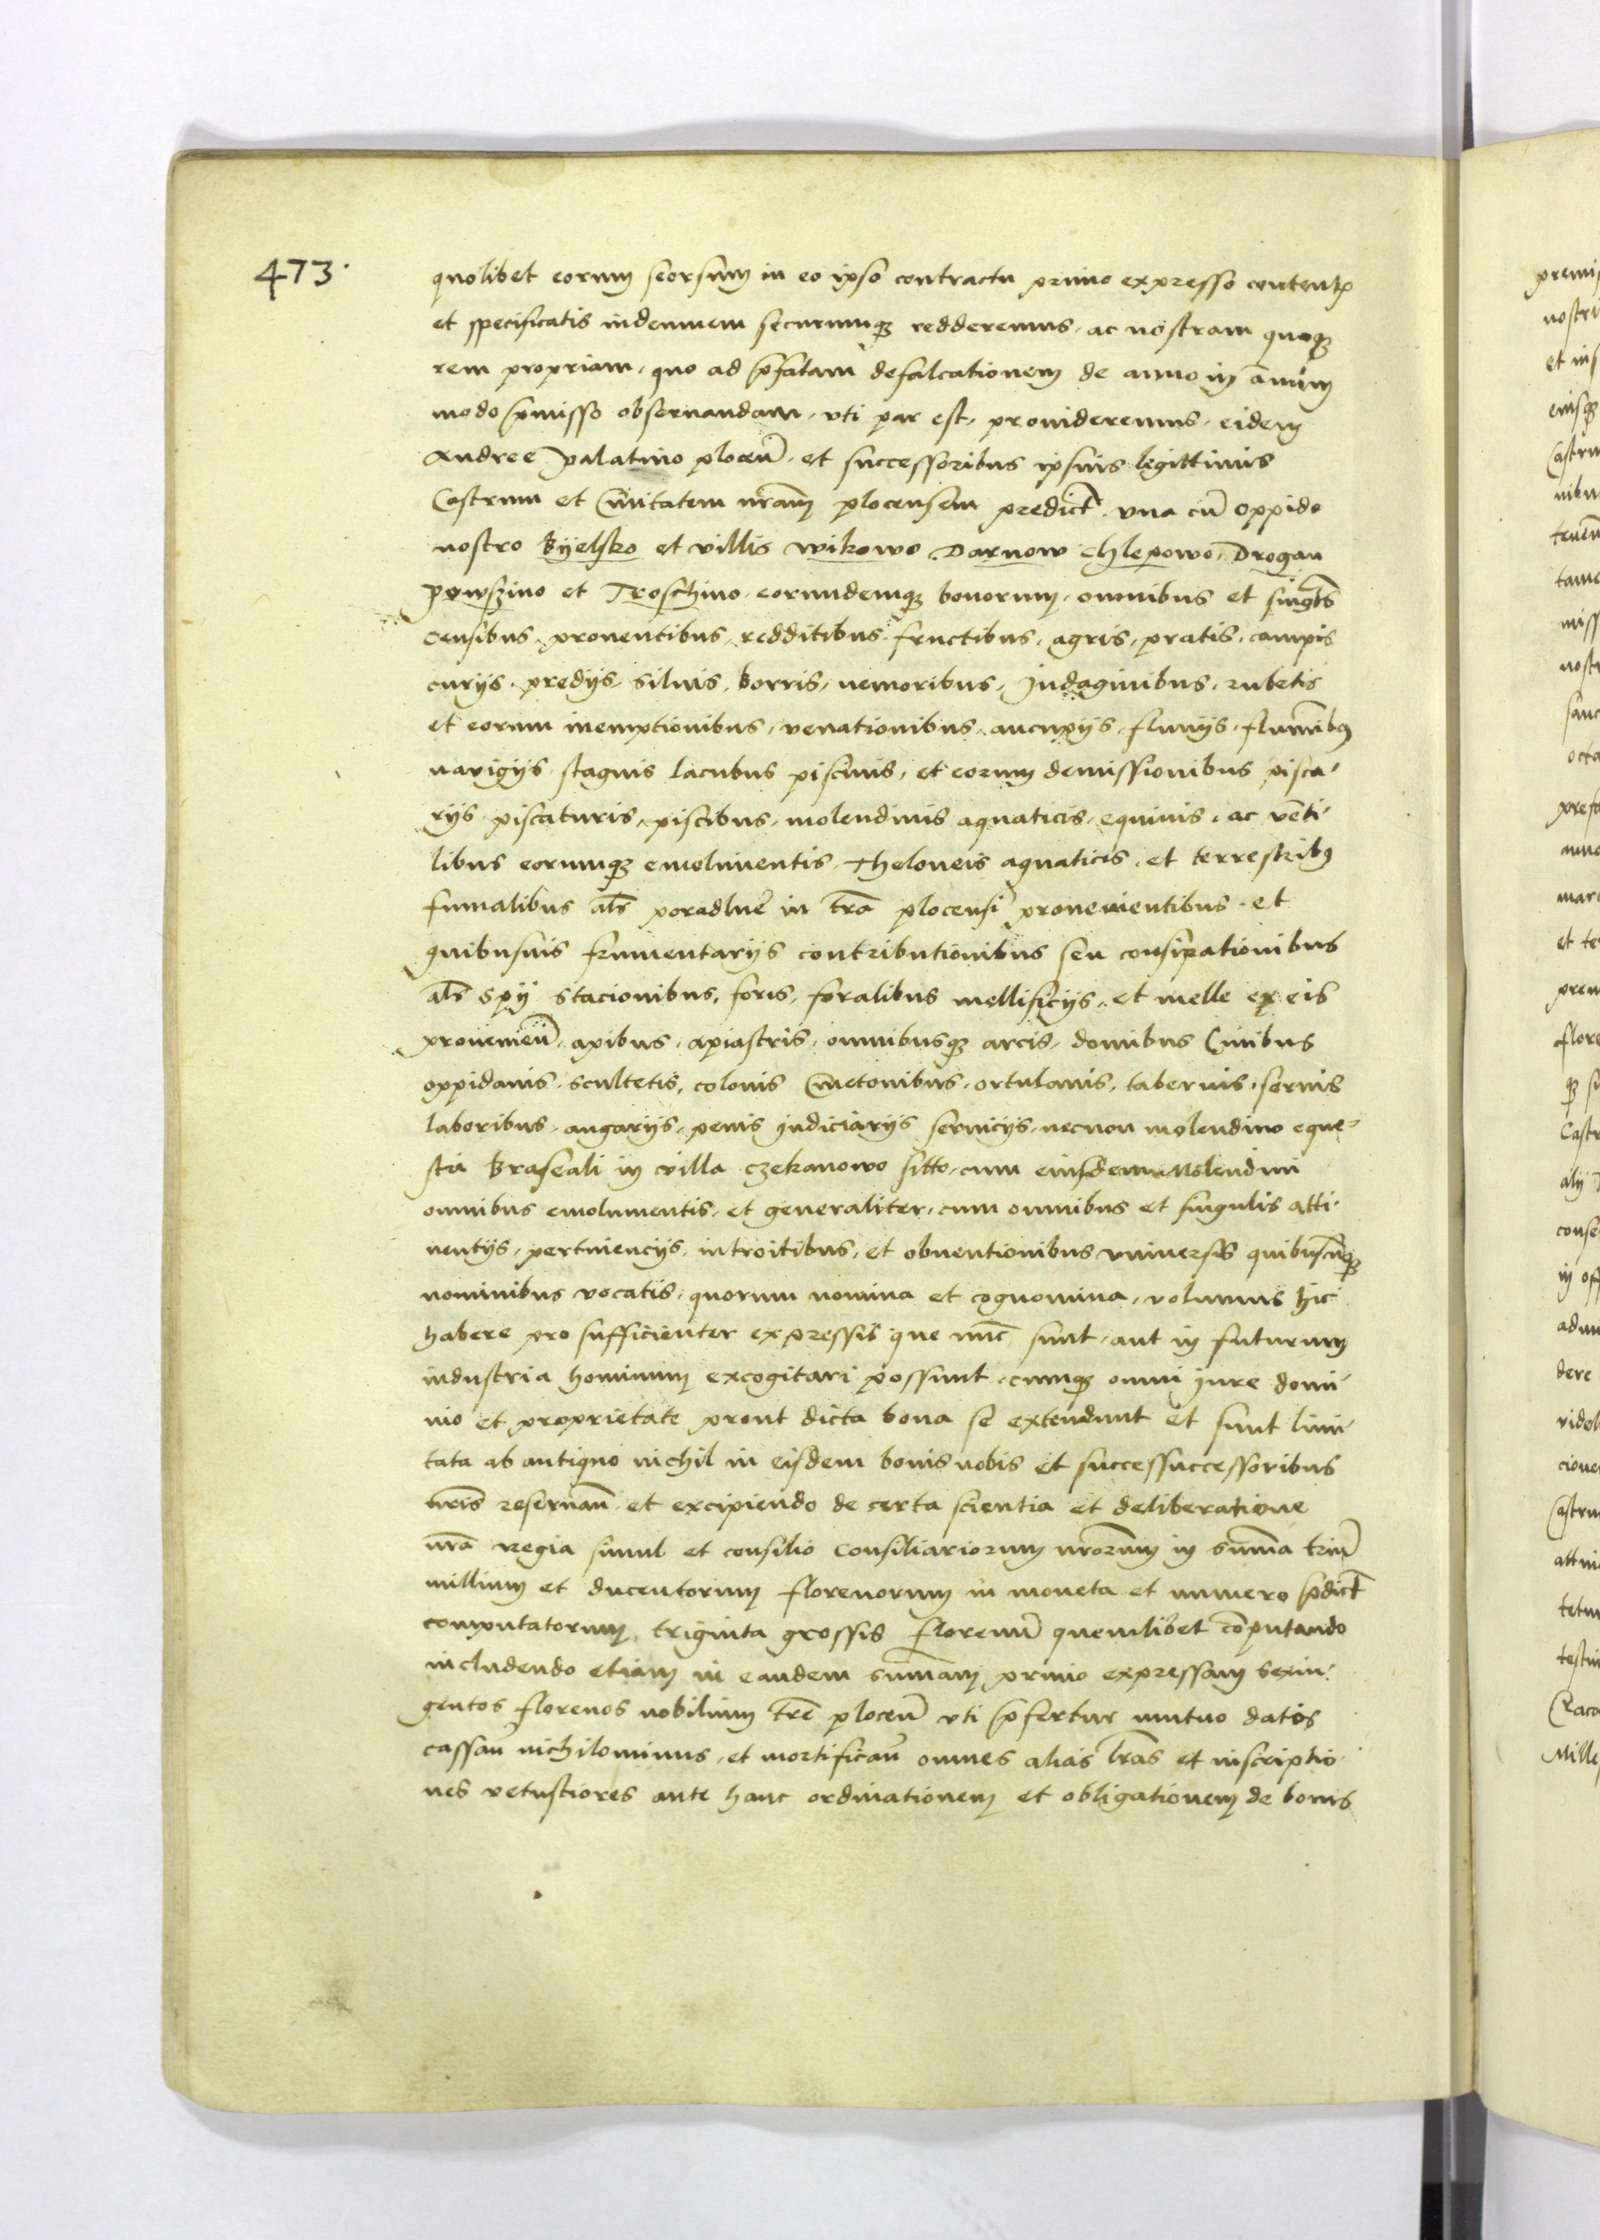 473.
quolibet eorum seorsum in eo ipso contractu primo expresso content
et specificatis indemnem securumq3 redderemus, ac nostram quoq3
rem propriam, quo ad p̄fatam defalcationem de anno in annum
modo p̄misso obseruandam, vti par est, prouideremus, eidem
Andree palatino plocen̄, et successoribus ipsius legittimis
Castrum et Ciuitatem nr̄am plocensem predict̄, vna cū oppido
nostro Byelsko et villis wikowo Darnow Chlepowo, Drogan
powszino et Troschino, eorundemq3 bonorum, omnibus et singl̄s
censibus, prouentibus, redditibus, fructibus, agris, pratis, campis
curijs, predijs siluis, borris, nemoribus, Indaginibus, rubetis
et eorum inemptionibus, venationibus, aucupijs, fluuijs, fluminib9
nauigijs, stagnis lacubus piscinis, et eorum demissionibus pisca-
rijs piscaturis, piscibus, molendinis aquaticis, equinis, ac venti-
libus eorumq3 emolumentis, Theloneis aquaticis, et terrestrib9
fumalibus al̄s poradlne in tr̄a plocensi prouenientibus, et
quibusuis frumentarijs contributionibus seu consipationibus
al̄s spy stacionibus, foris, foralibus mellificijs, et melle ex eis
prouenien̄, apibus, apiastris, omnibusq3 arcis, domibus Ciuibus
oppidanis, scultetis, colonis Cmetonibus, ortulanis, tabernis, seruis
laboribus, angarijs, penis Judiciarijs seruicijs, necnon molendino eque-
stri Braseali in villa Czekanowo sitto, cum eiusdem Molendini
omnibus emolumentis, et generaliter, cum omnibus et singulis atti-
nentijs, pertinencijs, introitibus, et obuentionibus vniuersis quibuscūq3
nominibus vocatis, quorum nomina et cognomina, volumus hic
habere pro sufficienter expressis que nūc sunt, aut in futurum
industria hominum excogitari possunt, cumq3 omni Jure domi-
nio et proprietate prout dicta bona se extendunt et sunt limi-
tata ab antiquo nichil in eisdem bonis nobis et successuccessoribus
nr̄is reseruan̄ et excipiendo de certa scientia et deliberatione
nr̄a regia simul et consilio Consiliariorum nr̄orum in summa triū
millium et ducentorum florenorum in moneta et numero p̄dict̄
computatorum, triginta grossis florenū quemlibet cōputando
includendo etiam in eandem summam primo expressam sexin-
gentos florenos nobilium tr̄e plocen̄ vti p̄fertur mutuo datos
cassan̄ nichilominus, et mortifican̄ omnes alias lr̄as et inscriptio-
nes vetustiores ante hanc ordinationem et obligationem de bonis